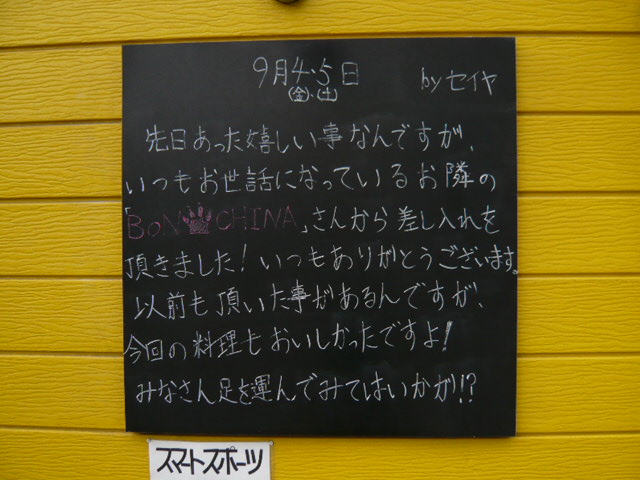 9月4・5日 byセイヤ
(金)・(土)
先日あった嬉しい事なんですが、
いつもお世話になっているお隣の
「BON CHINA」さんから差し入れを
頂きました!いつもありがとうございます。
以前も頂いた事があるんですが、
今回の料理もおいしかったですよ!
みなさん足を運んでみてはいかが!?
スマートスポーツ